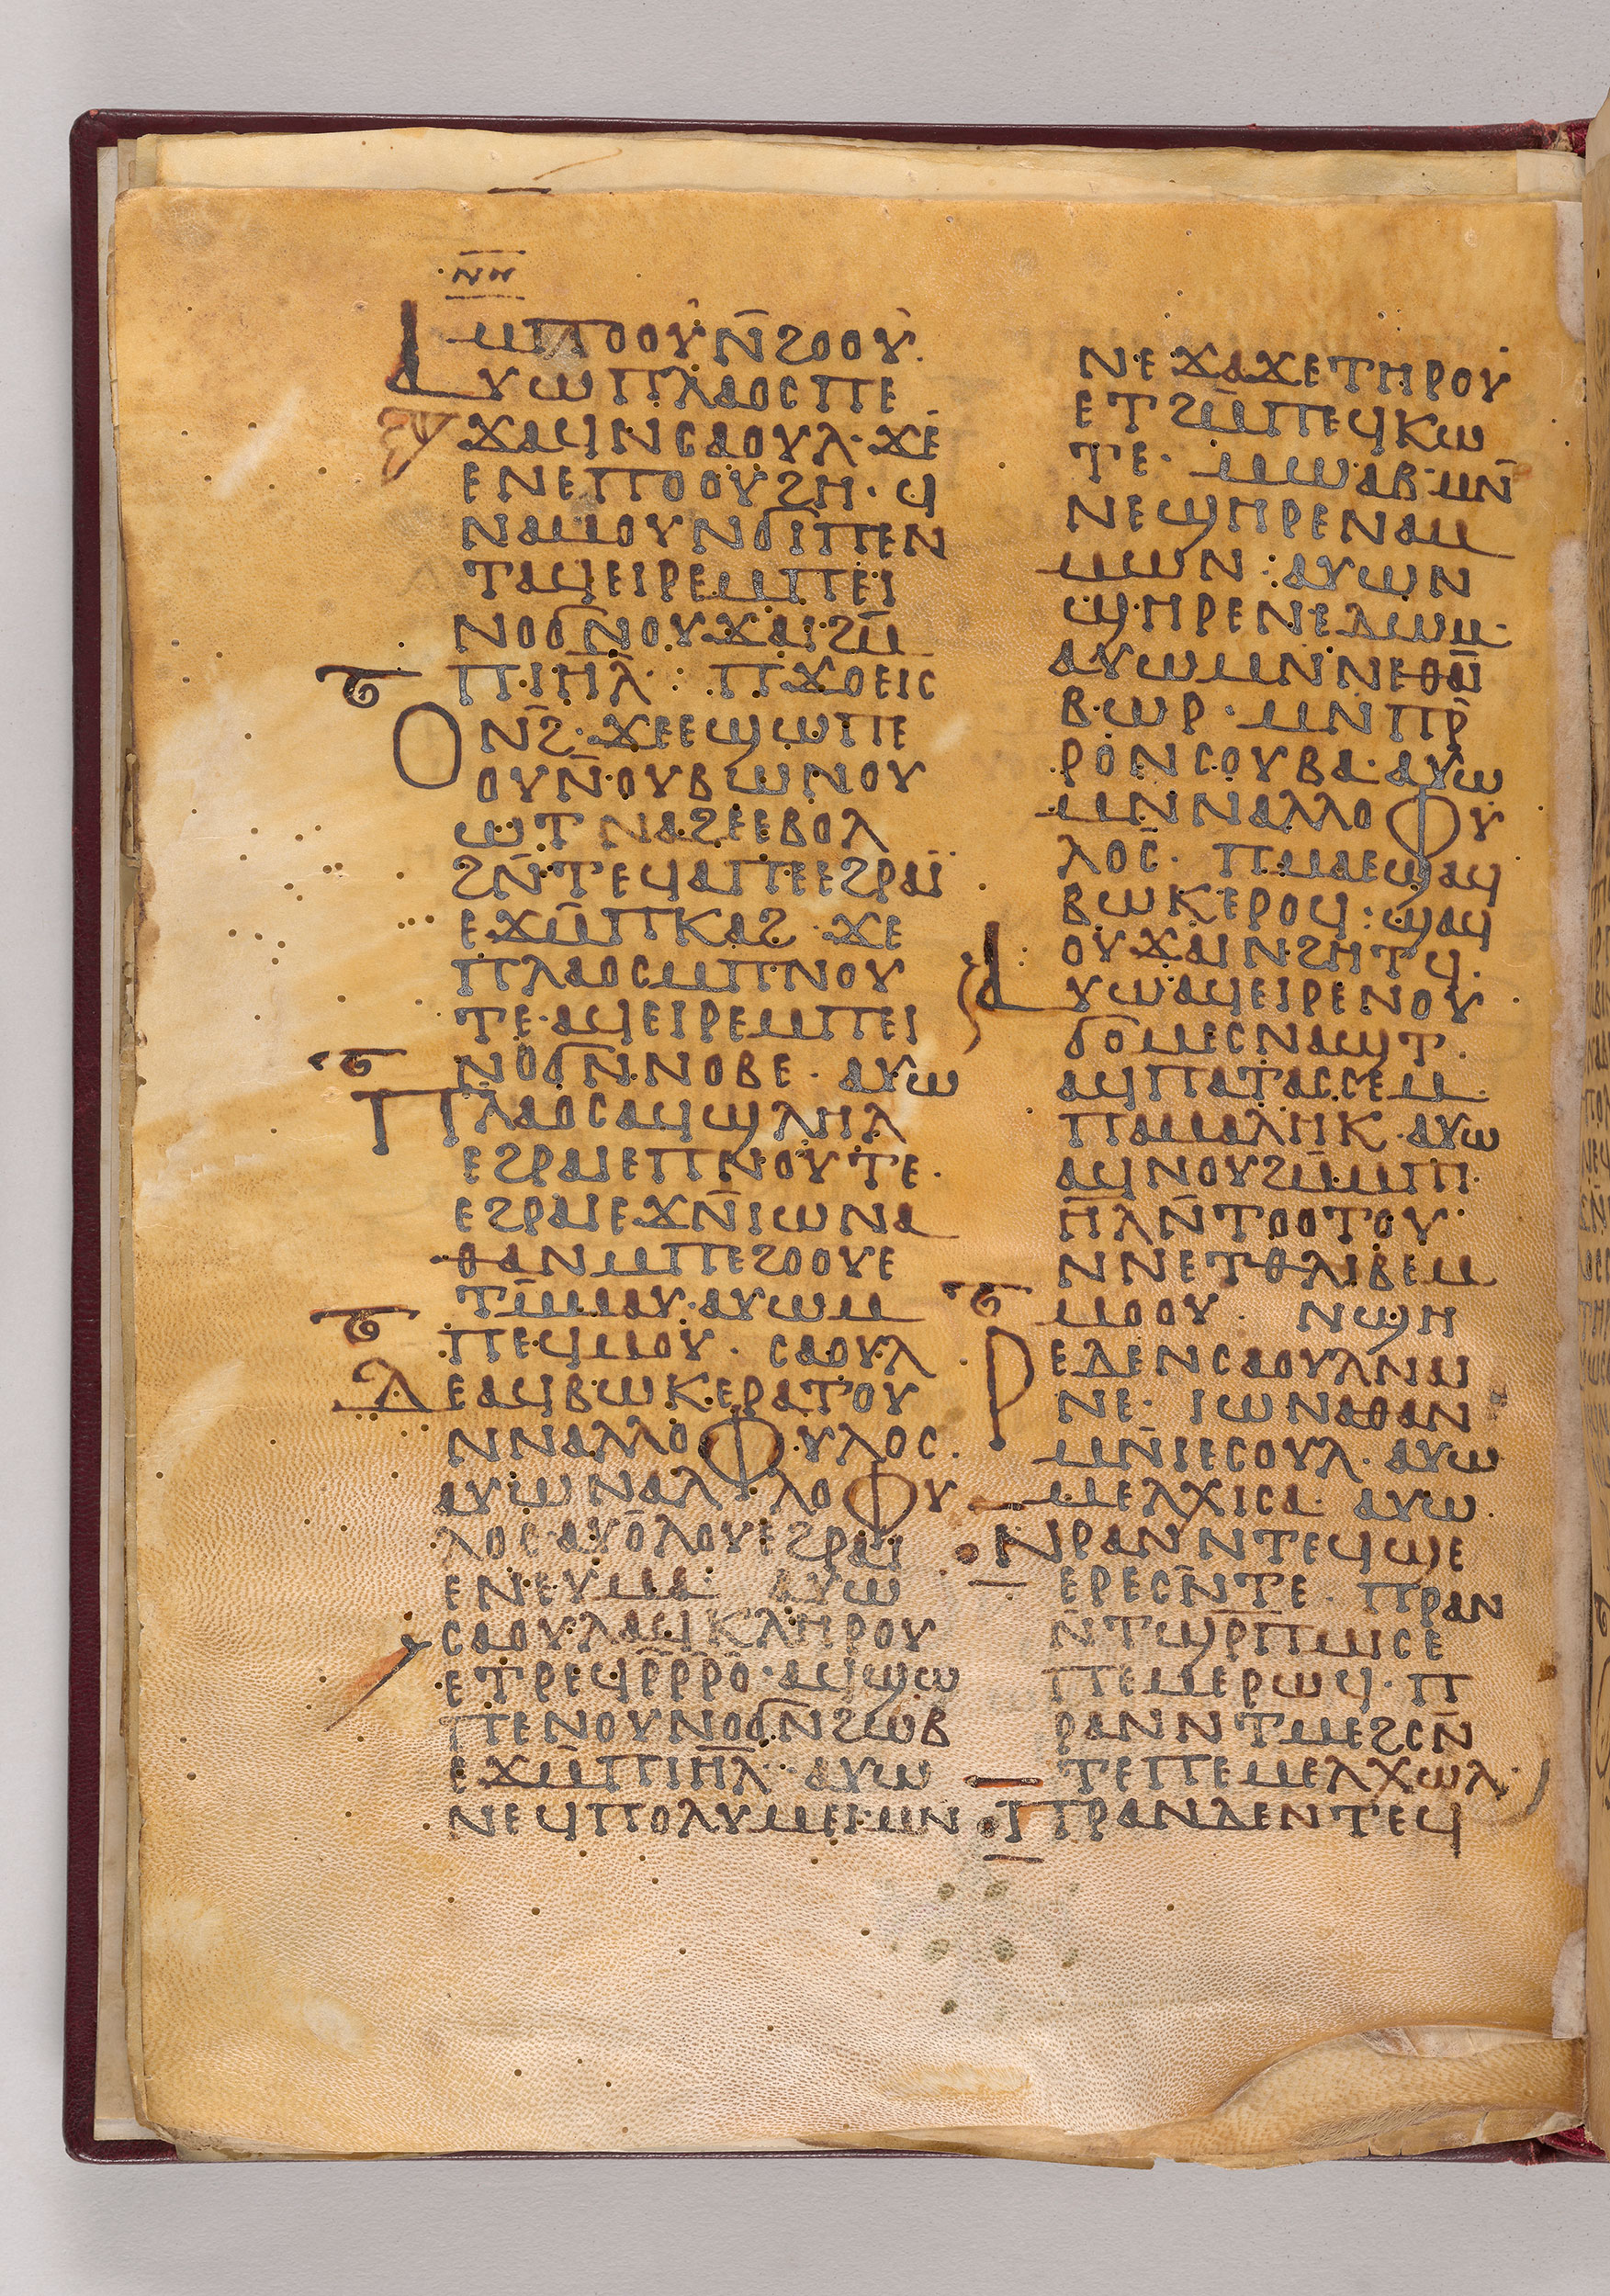 ⲛⲏ
ⲙⲡⲟⲟⲩ ⲛ̄ϩⲟⲟⲩ·
ⲁⲩⲱ ⲡⲗⲁⲟⲥ ⲡⲉ
ϫⲁϥ ⲛⲥⲁⲟⲩⲗ· ϫⲉ
ⲉⲛⲉⲡⲟⲟⲩϩⲏ· ϥ
ⲛⲁⲙⲟⲩ ⲛϭⲓⲡⲉⲛ
ⲧⲁϥⲉⲓⲣⲉ ⲙⲡⲉⲓ
ⲛⲟϭ ⲛⲟⲩϫⲁⲓ ϩⲙ̄
ⲡⲓⲏ̄ⲗ̄· : ⲡϫⲟⲉⲓⲥ
ⲟⲛϩ̄· ϫⲉⲉϣⲱⲡⲉ
ⲟⲩⲛ̄ⲟⲩⲃⲱ ⲛⲟⲩ
ⲱⲧ ⲛⲁϩⲉ ⲉⲃⲟⲗ
ϩⲛ̄ⲧⲉϥⲁⲡⲉ ⲉϩⲣⲁⲓ̈
ⲉϫⲙ̄ⲡⲕⲁϩ· ϫⲉ
ⲡⲗⲁⲟⲥ ⲙⲡⲛⲟⲩ
ⲧⲉ· ⲁϥⲉⲓⲣⲉ ⲙⲡⲉⲓ
ⲛⲟϭ ⲛⲛⲟⲃⲉ· ⲁⲩⲱ
ⲡⲗⲁⲟⲥ ⲁϥϣⲗⲏⲗ
ⲉϩⲣⲁⲓ ⲉⲡⲛⲟⲩⲧⲉ·
ⲉϩⲣⲁⲓ ⲉϫⲛ̄ ⲓⲱⲛⲁ
ⲑⲁⲛ ⲙⲡⲉϩⲟⲟⲩ ⲉ
ⲧⲙ̄ⲙⲁⲩ· ⲁⲩⲱ ⲙ
ⲡⲉϥⲙⲟⲩ· ⲥⲁⲟⲩⲗ
ⲇⲉ ⲁϥⲃⲱⲕ ⲉⲣⲁⲧⲟⲩ
ⲛⲛⲁⲗⲗⲟⲫⲩⲗⲟⲥ·
ⲁⲩⲱ ⲛⲁⲗⲗⲟⲫⲩ
ⲗⲟⲥ ⲁⲩⲟ̄ⲗⲟⲩ ⲉϩⲣⲁⲓ
ⲉⲛⲉⲩⲙⲁ· ⲁⲩⲱ
ⲥⲁⲟⲩⲗ ⲁϥⲕⲗⲏⲣⲟⲩ
ⲉⲧⲣⲉϥⲣ̄ⲣ̄ⲣⲟ̄· ⲁϥϣⲱ
ⲡⲉ ⲛⲟⲩⲛⲟϭ ⲛϩⲱⲃ
ⲉϫⲙ̄ⲡⲓⲏ̄ⲗ̄· ⲁⲩⲱ
ⲛⲉϥⲡⲟⲗⲩⲙⲉⲓ ⲙⲛ
ⲛⲉϫⲁϫⲉ ⲧⲏⲣⲟⲩ
ⲉⲧϩⲙ̄ⲡⲉϥⲕⲱ
ⲧⲉ· ⲙⲱⲁⲃ· ⲙⲛ̄
ⲛⲉϣⲏⲣⲉ ⲛⲁⲙ
ⲙⲱⲛ : ⲁⲩⲱ ⲛ
ϣⲏⲣⲉ ⲛⲉⲇⲱⲙ·
ⲁⲩⲱ ⲙⲛ ⲛⲉⲑⲁⲓ̄
ⲃⲱⲣ· ⲙⲛ ⲡⲣ̄
ⲣⲟ ⲛⲥⲟⲩⲃⲁ· ⲁⲩⲱ
ⲙⲛ ⲛⲁⲗⲗⲟⲫⲩ
ⲗⲟⲥ̄· ⲡⲙⲁ ⲉϣⲁϥ
ⲃⲱⲕ ⲉⲣⲟϥ : ϣⲁϥ
ⲟⲩϫⲁⲓ ⲛϩⲏⲧϥ·
ⲁⲩⲱ ⲁϥⲉⲓⲣⲉ ⲛⲟⲩ
ϭⲟⲙ ⲉⲥⲛⲁϣⲧ·
ⲁϥⲡⲁⲧⲁⲥⲥⲉ ⲙ
ⲡⲁⲙⲁⲗⲏⲕ· ⲁⲩⲱ
ⲁϥⲛⲟⲩϩⲙ̄ ⲙⲡⲓ
ⲏ̄ⲗ ⲛ̄ⲧⲟⲟⲧⲟⲩ
ⲛⲛⲉⲧⲑⲗⲓⲃⲉ ⲙ
ⲙⲟⲟⲩ· ⲛϣⲏ
ⲣⲉ ⲇⲉ ⲛⲥⲁⲟⲩⲗ ⲛⲁⲓ
ⲛⲉ· ⲓⲱⲛⲁⲑⲁⲛ
ⲙⲛ̄ ⲓⲉⲥⲟⲩⲗ· ⲁⲩⲱ
ⲙⲉⲗⲭⲓⲥⲁ· ⲁⲩⲱ
ⲛⲣⲁⲛ ⲛⲧⲉϥϣⲉ
ⲉⲣⲉ ⲥⲛ̄ⲧⲉ· ⲡⲣⲁⲛ
ⲛ̄ⲧϣⲣ̄ⲡⲙⲓⲥⲉ
ⲡⲉ ⲙⲉⲣⲱϥ· ⲡ
ⲣⲁⲛ ⲛⲧⲙⲉϩⲥⲛ̄
ⲧⲉ ⲡⲉ ⲙⲉⲗⲭⲱⲗ·
ⲡⲣⲁⲛ ⲇⲉ ⲛⲧⲉϥ